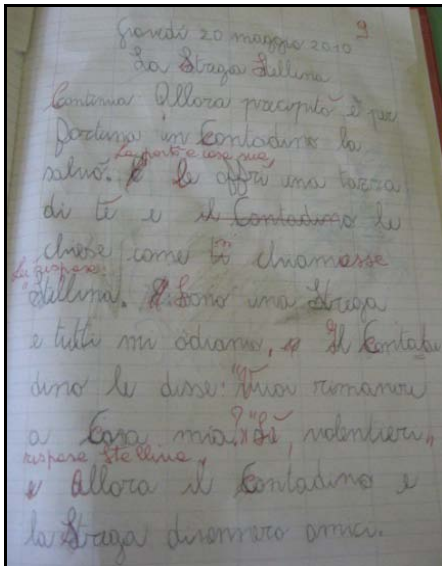 9
Giovedì 20 maggio 2010
La Strega Stellina
Continua Allora precipitò e per
fortuna un Contadino la
La portò a casa sua,
salvò. E Le offrì una tazza
di tè e il Contadino le
chiese come si chiamasse
Lei rispose:
"Stellina. Sono una Strega
e tutti mi odiano, Il Conta
dino le disse: "Vuoi rimanere
a Casa mia?" "Sì, volentieri"
rispose Stellina,
e Allora il Contadino e
la Strega divennero amici.